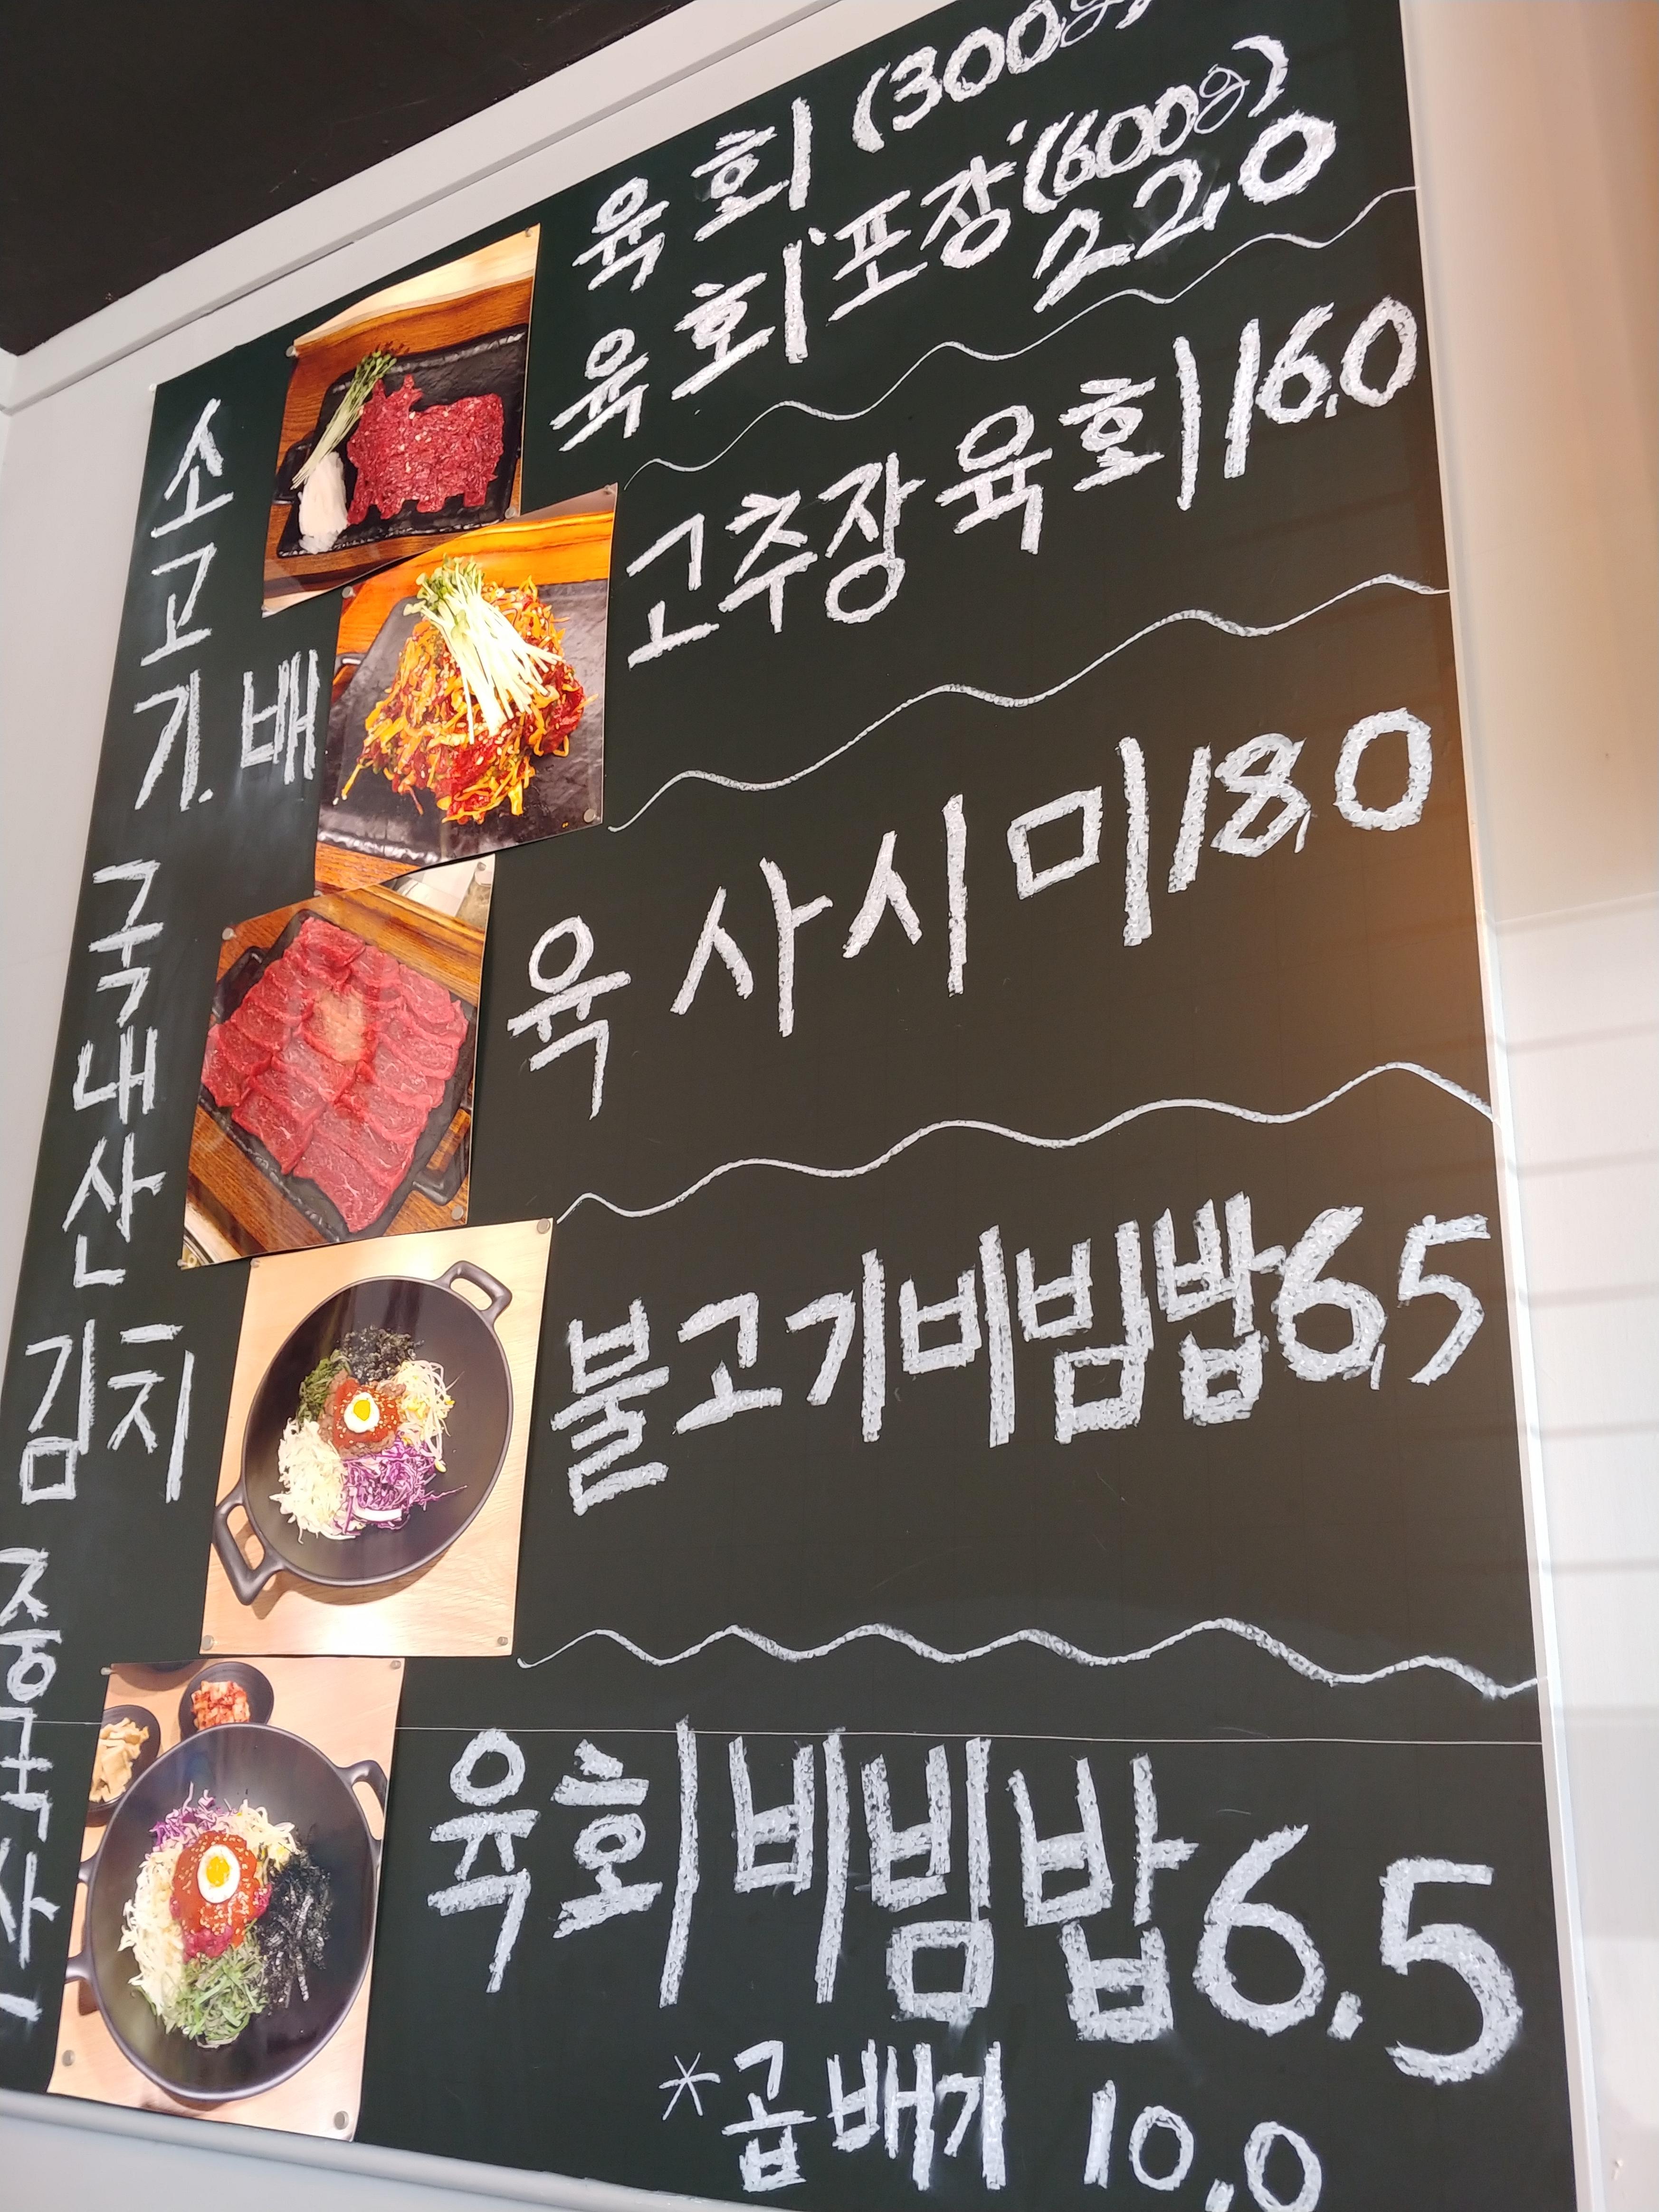 육회 (300g)
육회 '포장' (600g)
22,0
고추장 육회 16,0
육사시미 18,0
불고기비빔밥 6,5
육회비빔밥 6.5
*곱배기 10,0
소고기. 배
국내산
김치
중국산